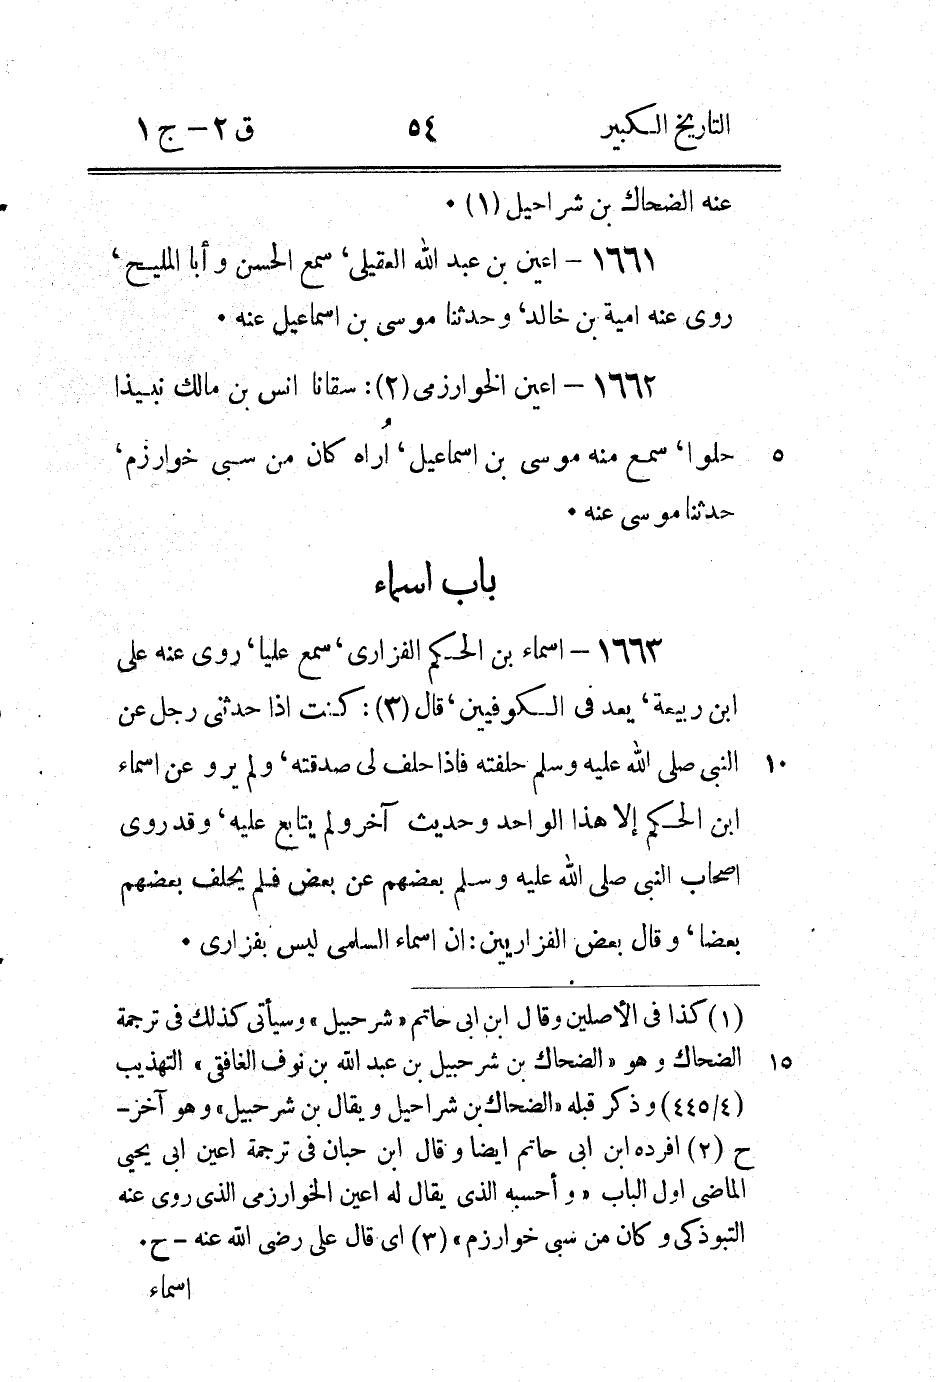 التاريخ الكبير ٥٤ ق ٢ – ج ١
عنه الضحاك بن شراحيل (١) ٠
١٦٦١ – اعين بن عبد الله العقيلى، سمع الحسن و أبا المليح،
روى عنه امية بن خالد، و حدثنا موسى بن اسماعيل عنه ٠
١٦٦٢ – اعين الخوارزمى (٢): سقانا انس بن مالك نبيذا
حلوا، سمع منه موسى بن اسماعيل، أُراه كان من سبى خوارزم، ٥
حدثنا موسى عنه ٠
باب اسماء
١٦٦٣ – اسماء بن الحكم الفزارى، سمع عليا، روى عنه على
ابن ربيعة، يعد فى الكوفيين، قال (٣): كنت اذا حدثنى رجل عن
النبى صلى الله عليه و سلم حلفته فاذا حلف لى صدقته، و لم يرو عن اسماء ١٠
ابن الحكم إلا هذا الواحد و حديث آخر و لم يتابع عليه، و قد روى
اصحاب النبى صلى الله عليه و سلم بعضهم عن بعض فلم يحلف بعضهم
بعضا، و قال بعض الفزاريين: ان اسماء السلمى ليس بفزارى ٠
(١) كذا فى الأصلين و قال ابن ابى حاتم «شرحبيل» وسيأتى كذلك فى ترجمة
الضحاك و هو «الضحاك بن شرحبيل بن عبد الله بن نوف الغافقى» التهذيب ١٥
(٤/٤٤٥) و ذكر قبله «الضحاك بن شراحيل و يقال بن شرحبيل» و هو آخر–
ح (٢) افرده ابن ابى حاتم ايضا و قال ابن حبان فى ترجمة اعين ابى يحيى
الماضى اول الباب « و أحسبه الذى يقال له اعين الخوارزمى الذى روى عنه
التبوذكى و كان من سبى خوارزم» (٣) اى قال على رضى الله عنه – ح٠
اسماء